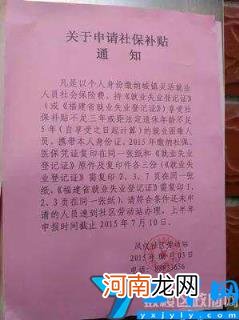 关于申请社保补贴
通 知
凡是以个人身份缴纳城镇灵活就业
人员社会保险费、持《就业失业登记证》
(或《福建省就业失业登记证》)享受社
保补贴不足三年或距法定退休年龄不足
5年(自享受之日起计算)的就业困难人
员,携带本人身份证、2015年缴纳社保、
医保凭证复印在同一张纸和《就业失业
登记证》原件及复印件各三份(《就业失
业登记证》需复印2、3、7页在同一张
纸,《福建省就业失业登记证》需复印1、
2、3页在同一张纸),请符合条件还未申
请的人员速到社区劳动站办理,上半年
申报时间截止2015年7月10日。
凤仪社区劳动站
优质经验网
yxjyly.com